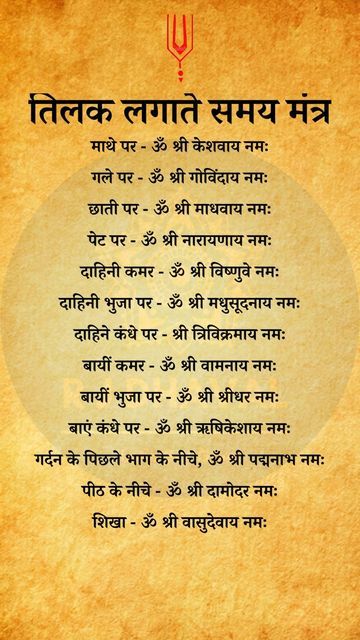 तिलक लगाते समय मंत्र
माथे पर - ॐ श्री केशवाय नमः
गले पर - ॐ श्री गोविंदाय नमः
छाती पर - ॐ श्री माधवाय नमः
पेट पर - ॐ श्री नारायणाय नमः
दाहिनी कमर - ॐ श्री विष्णुवे नमः
दाहिनी भुजा पर - ॐ श्री मधुसूदनाय नमः
दाहिने कंधे पर - श्री त्रिविक्रमाय नमः
बायीं कमर - ॐ श्री वामनाय नमः
बायीं भुजा पर - ॐ श्री श्रीधर नमः
बाएं कंधे पर - ॐ श्री ऋषिकेशाय नमः
गर्दन के पिछले भाग के नीचे, ॐ श्री पद्मनाभ नमः
पीठ के नीचे - ॐ श्री दामोदर नमः
शिखा - ॐ श्री वासुदेवाय नमः